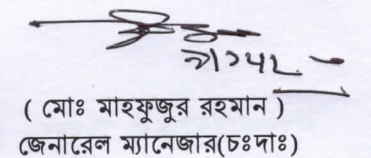 ( মোঃ মাহফুজুর রহমান )
জেনারেল ম্যানেজার(চঃদাঃ)